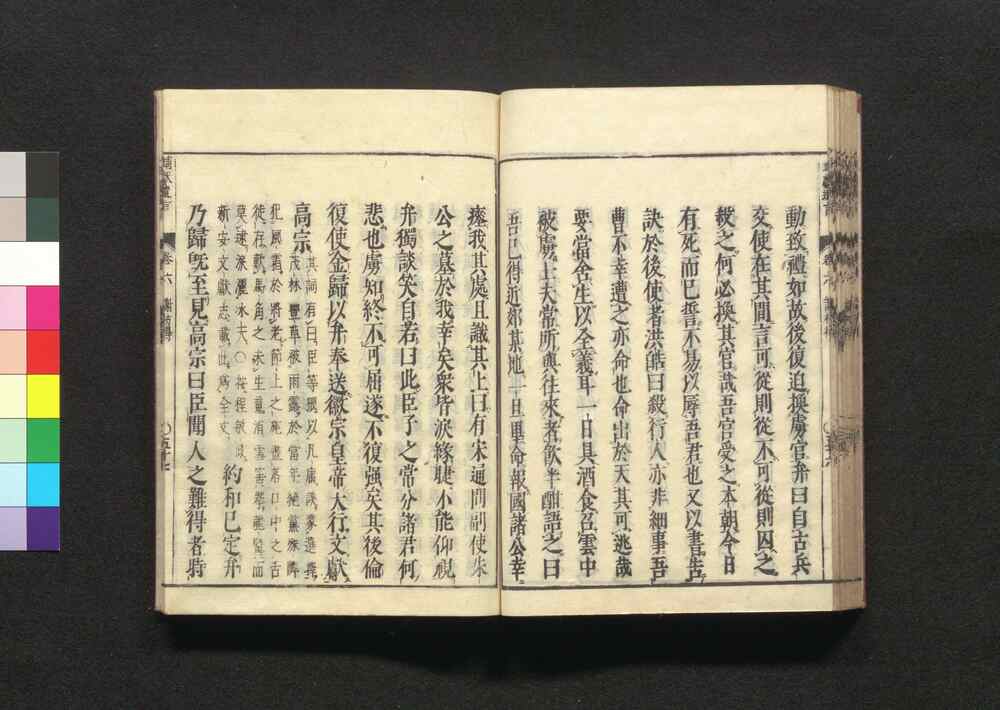 動致禮如故後復迫換虜官弁曰自古兵
交使在其間言可從則從不可從則囚之
殺之何必換其官哉吾官受之本朝今日
有死而已誓不易以辱吾君也又以書告
訣於後使者洪皓曰殺行人亦非細事吾
曹不幸遭之亦命也命出於天其可逃哉
要當舍生以全義耳一日具酒食召雲中
被虜士大常所與往來者飲半酣語之曰
吾已得近郊某地一旦畢命報國諸公幸
瘞我其處且識其上曰有宋通問副使朱
公之墓於我幸矣衆皆淚緣睫不能仰視
弁獨談笑自若曰此臣子之常分諸君何
悲也虜知終不可屈遂不復强矣其後倫
復使金歸以弁奉送徽宗皇帝大行文獻
高宗其詞有曰臣等
茂林豐草被雨露於當年絕黨殊隣
犯風霜於將老節上之旄盡落口中之舌
徒存歎馬角之未生魂消雪窖攀龍髯而
莫逮淚灑冰天○按程敏政
新安文獻志載此爲全文約和已定弁
乃歸旣至見高宗曰臣聞人之難得者時
卷六